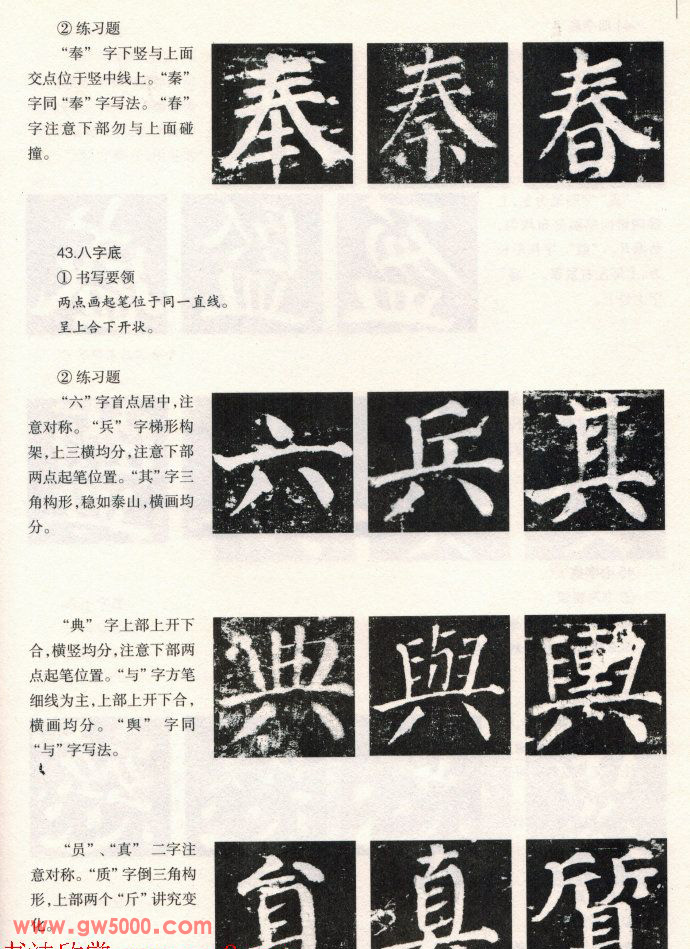 ② 练习题
“奉” 字下竖与上面
交点位于竖中线上。“秦”
字同“奉”字写法。“春”
字注意下部勿与上面碰
撞。
奉 秦 春
43.八字底
① 书写要领
两点画起笔位于同一直线。
呈上合下开状。
② 练习题
“六”字首点居中,注
意对称。“兵” 字梯形构
架,上三横均分,注意下部
两点起笔位置。“其”字三
角构形,稳如泰山,横画均
分。
六 兵 其
“典” 字上部上开下
合,横竖均分,注意下部两
点起笔位置。“与”字方笔
细线为主,上部上开下合,
横画均分。“舆” 字同
“与”字写法。
典 與 輿
“员”、“真” 二字注
意对称。“质”字倒三角构
形,上部两个“斤”讲究变
化。
員 真 質
www.gw5000.com